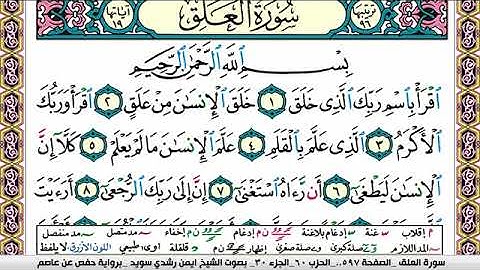 ترتيبها ٩٦ سُورَةُ الْعَلَقِ آياتها ١٩
بِسْمِ ٱللَّهِ ٱلرَّحْمَٰنِ ٱلرَّحِيمِ
ٱقْرَأْ بِٱسْمِ رَبِّكَ ٱلَّذِى خَلَقَ ١ خَلَقَ ٱلْإِنسَٰنَ مِنْ عَلَقٍ ٢ ٱقْرَأْ وَرَبُّكَ
ٱلْأَكْرَمُ ٣ ٱلَّذِى عَلَّمَ بِٱلْقَلَمِ ٤ عَلَّمَ ٱلْإِنسَٰنَ مَا لَمْ يَعْلَمْ ٥ كَلَّآ إِنَّ
ٱلْإِنسَٰنَ لَيَطْغَىٰٓ ٦ أَن رَّءَاهُ ٱسْتَغْنَىٰٓ ٧ إِنَّ إِلَىٰ رَبِّكَ ٱلرُّجْعَىٰٓ ٨ أَرَءَيْتَ
م إقلاب س غنة س إدغام بلاغنة ن م إدغام ن م إخفاء مدمتصل مد منفصل
المد اللازم صلة كبرى صلة صغرى ن م إظهار قلقلة اوى طبيعي اللون الأزرق لا يلفظ
سورة العلق _الصفحة ٥٩٧_ الحزب ٦٠_ الجزء ٣٠_ بصوت الشيخ ايمن رشدي سويد _برواية حفص عن عاصم